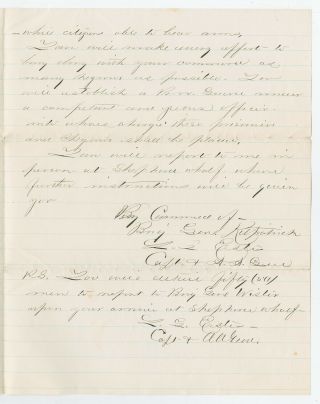 white citizens able to bear arms,
You will make every effort to
bring along with your command as
many Negroes as possible. You
will establish a Prov Guard under
a competent and Officer
into whose charge these prisoners
and Negroes shall be placed,
You will report to me in
person at wharf, where
further instructions will be given
you
By Command of—
Brig Genl Kilpatrick
L. G. Estes
Capt & A. A. Genl
P.S. You will fifty (50)
men to report to Brig Genl Wistar
upon your arrival at wharf—
L. G. Estes—
Capt & AAGenl.